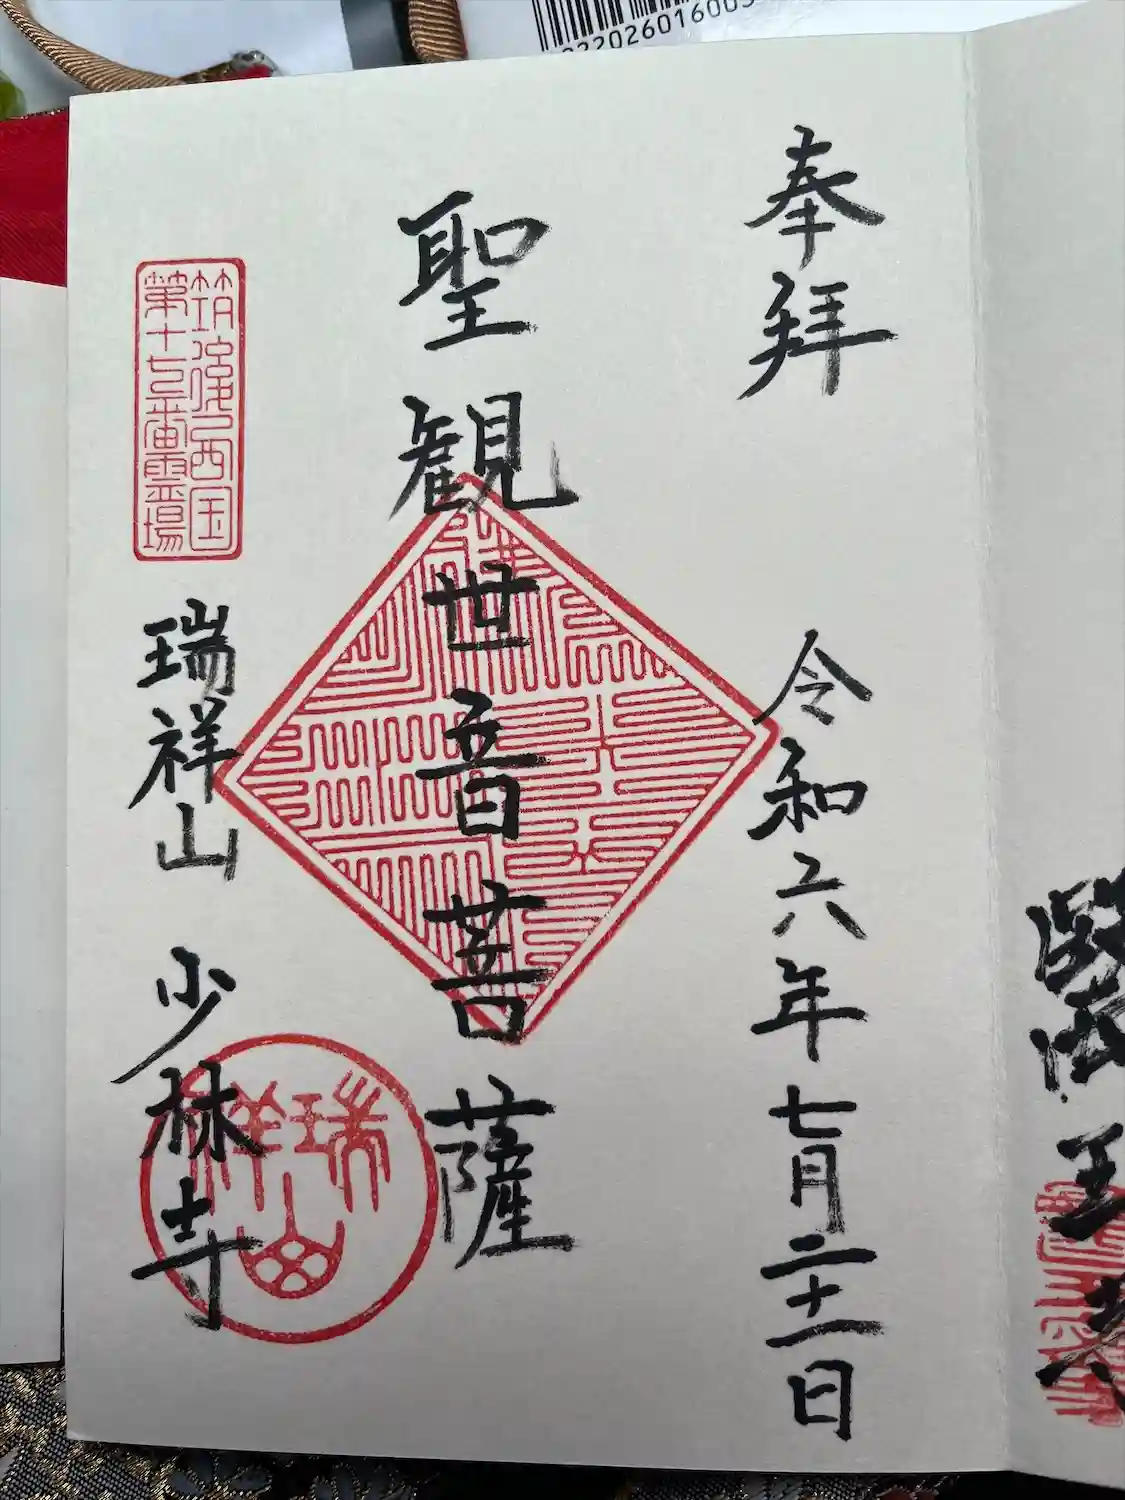 奉拝
令和六年七月二十一日
聖観世音菩薩
筑後西国
第十七番霊場
瑞祥山 少林寺
瑞祥山